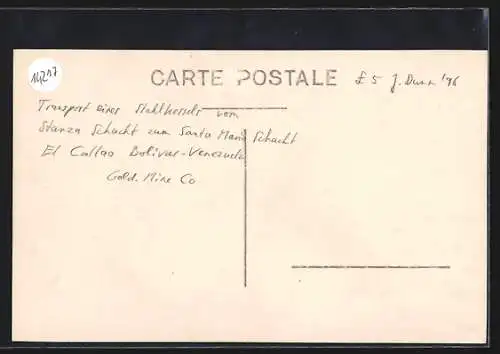 14217
CARTE POSTALE £ 5 J. Dunn '96
Transport eines Stahlkessels vom
Stanza Schacht zum Santa Maria Schacht
El Callao Bolivar-Venezuela
Gold. Mine Co